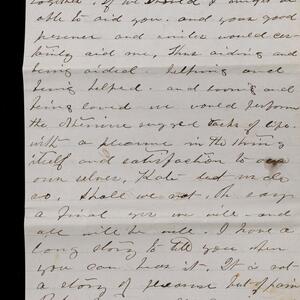 together. If we should I might be
able to aid you. and your good
presence and smiles would cer-
tainly aid me, thus aiding and
being aided. helping and
being helped. and loving and
being loved we would perform
the otherwise rugged tasks of life.
with a pleasure in the thing
itself and satisfaction to our
own selves, Kate let us do
so, shall we not. Oh say
a final yes we will - and
all will be well. I have a
long story to till you when
you can hear it. It is not
a story of pleasure but of pain